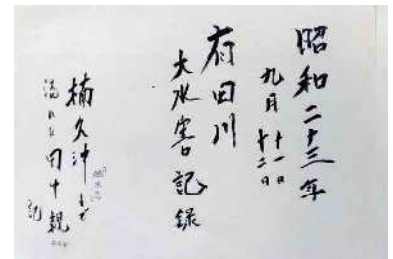 昭和二十三年
九月十一日
十二日
有田川
大水害記録
楠久沖
田中親
記